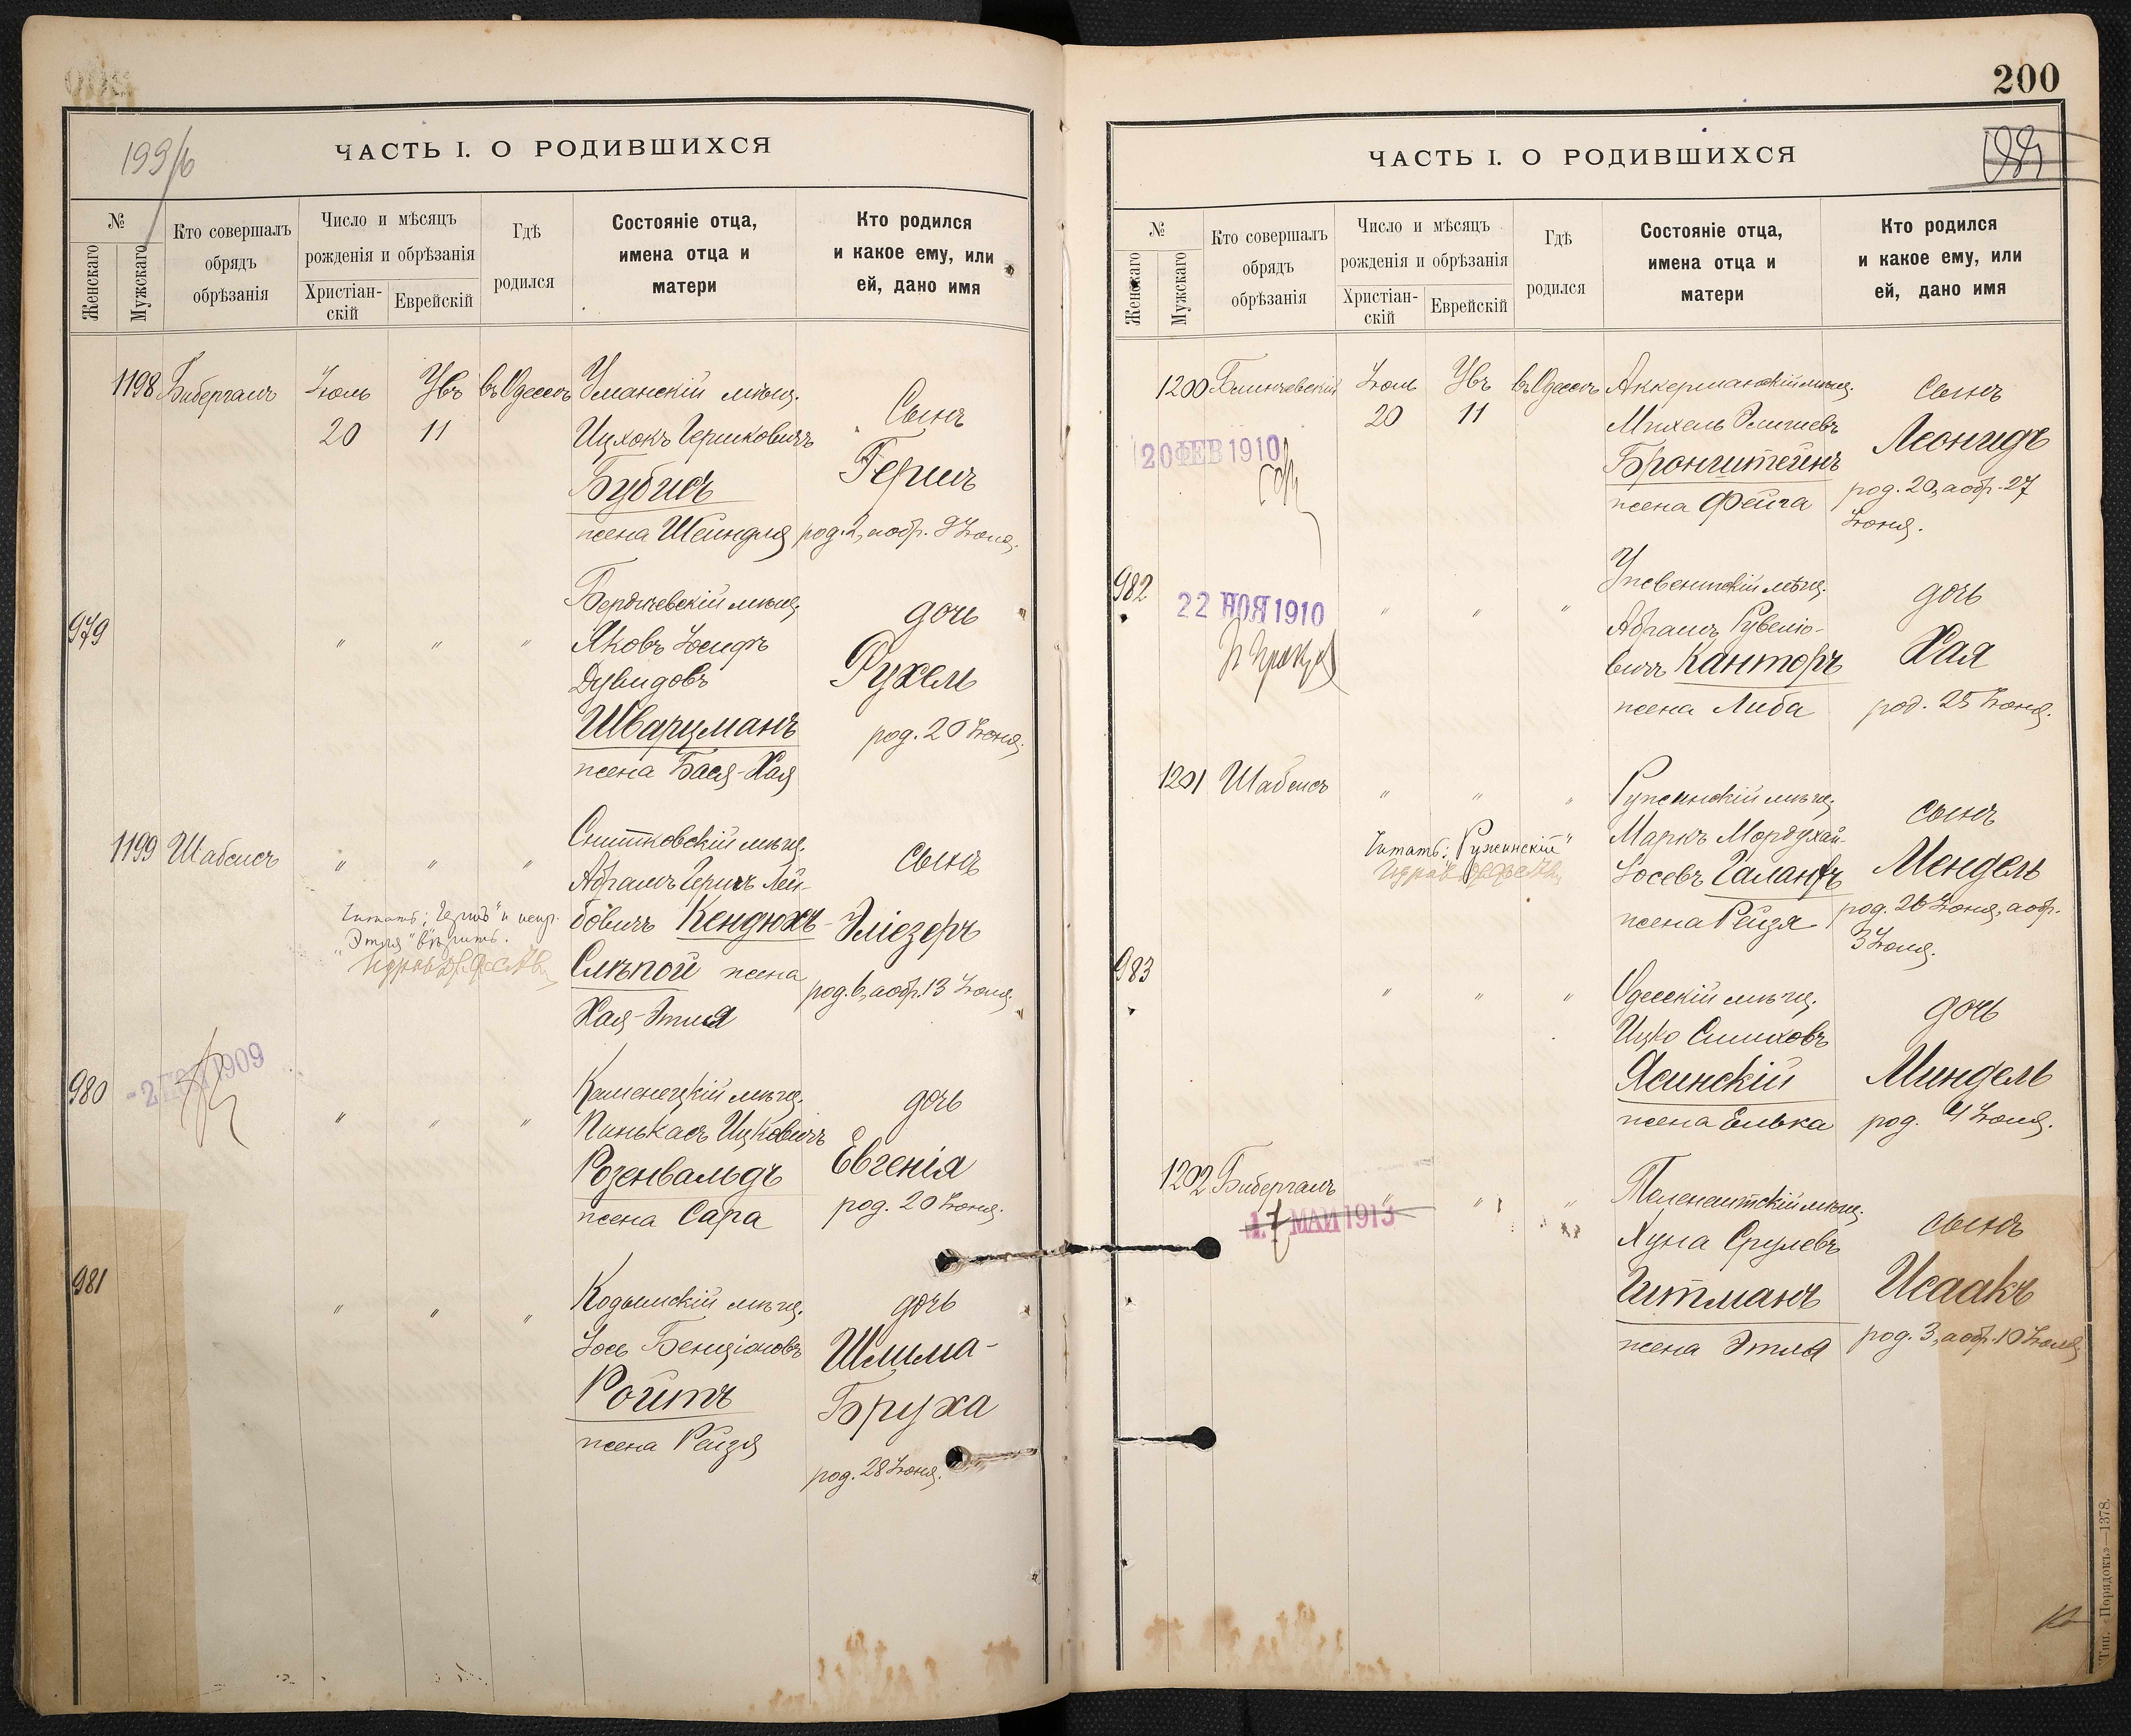 199/б
ЧАСТЬ I. О РОДИВШИХСЯ
№
Женскаго
Мужскаго
Кто совершалъ
обрядъ
обрѣзанія
Число и мѣсяцъ
рожденія и обрѣзанія
Христіан-
скій
Еврейскій
Гдѣ
родился
Состояніе отца,
имена отца и
матери
Кто родился
и какое ему, или
ей, дано имя
1198 Бибергалъ Іюль Увъ въ Одессѣ Уманскій мѣщ.
20 11 Ицхокъ Гершковичъ
Бубисъ
жена Шейндля
Сынъ
Гершъ
род. 2, а обр. 9 Іюля.
979 " " " Бердичевскій мѣщ.
Яковъ Іосифъ
Дувидовъ
Шварцманъ
жена Бася-Хая
дочь
Рухель
род. 20 Іюня.
1199 Шабсисъ " " " Снитковскій мѣщ.
Абрамъ Гершъ Лей-
бовичъ Кендюхъ-
Слѣпой жена
Хая-Этля
Читать: "Гершъ" и испр.
"Этля" вѣрить.
сынъ
Эліезеръ
род. 6, а обр. 13 Іюля.
980 " " " Каменецкій мѣщ.
1909
Пинькасъ Ицковичъ
Розенвальдъ
жена Сара
дочь
Евгенія
род. 20 Іюня.
981 " " " Кодымскій мѣщ.
Іось Бенціоновъ
Ройтъ
жена Рейзя
дочь
Шлима-
Бруха
род. 28 Іюня.
200
ЧАСТЬ I. О РОДИВШИХСЯ
№
Женскаго
Мужскаго
Кто совершалъ
обрядъ
обрѣзанія
Число и мѣсяцъ
рожденія и обрѣзанія
Христіан-
скій
Еврейскій
Гдѣ
родился
Состояніе отца,
имена отца и
матери
Кто родился
и какое ему, или
ей, дано имя
1200 Блинчевскій Іюль Увъ въ Одессѣ Аккерманскій мѣщ.
20 11 Михель
20 ФЕВ 1910
Бронштейнъ
жена Фейга
Сынъ
Леонидъ
род. 20, а обр. 27
Іюня.
982 " " "
22 НОЯ 1910
мѣщ.
Абрамъ Рувеліо-
вичъ Канторъ
жена Либа
дочь
Хая
род. 25 Іюня.
1201 Шабсисъ " " " Ружинскій мѣщ.
Маркъ Мордухай-
Іосевъ Галантъ
жена Рейзя
Читать: "Ружинскій"
сынъ
Мендель
род. 26 Іюня, а обр.
3 Іюля.
983 " " " Одесскій мѣщ.
Ицко Симховъ
Ясинскій
жена Елька
дочь
Миндель
род. 4 Іюля.
1202 Бибергалъ " " " мѣщ.
17 МАИ 1913
Хуна Срулевъ
Гитманъ
жена Этля
сынъ
Исаакъ
род. 3, а обр. 10 Іюля.
Тип. «Порядокъ»—1378.